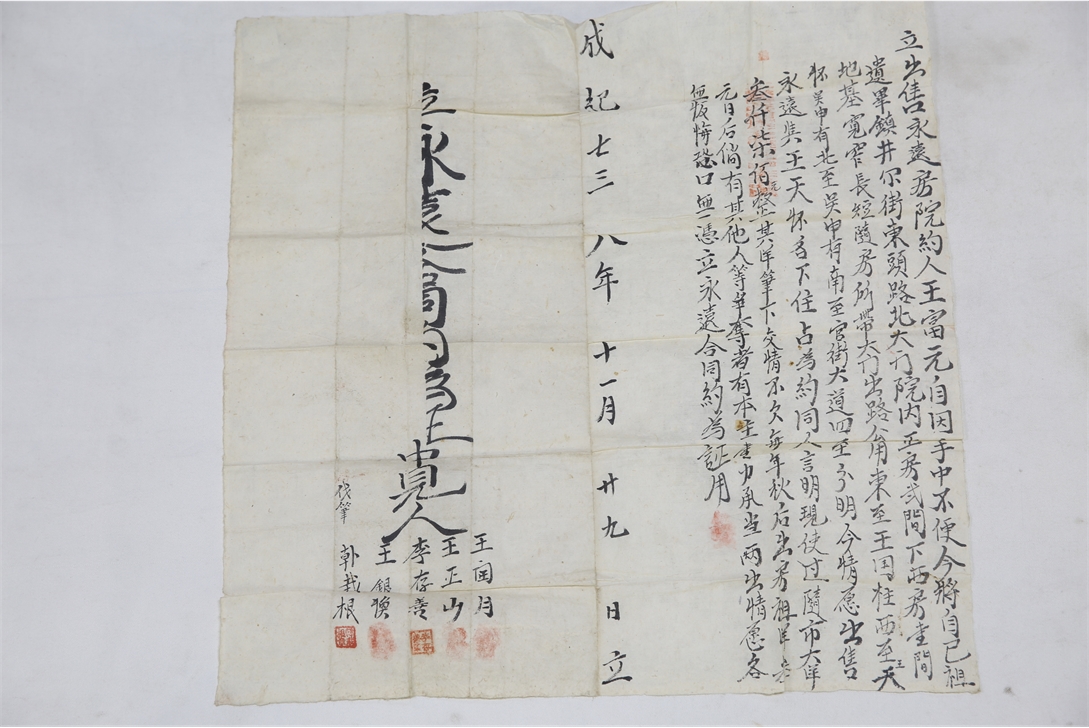 立出售永遠房院約人王富元自因手中不便今將自已祖
遺畢鎮井尔街東頭路北大门院内正房弍間下西房壹間
地基寬窄長短隨房所帶大门出路八角東至王国柱西至王天
怀吴申有北至吴申有南至官街大道四至分明今情愿出售
永遠與王天怀名下住占為約同人言明現使过隨市大洋
叁仟柒佰元整其洋筆下交情不欠每年秋后出房租洋
元日后倘有其他人等争奪者有本主壹力承当兩出情愿各
無返悔恐口無憑立永遠合同約為証用
成紀七三八年十一月廿九日立
立永遠合同約為正
中見人
王闰月
王正山
李存善
王銀換
代筆
郭栽根